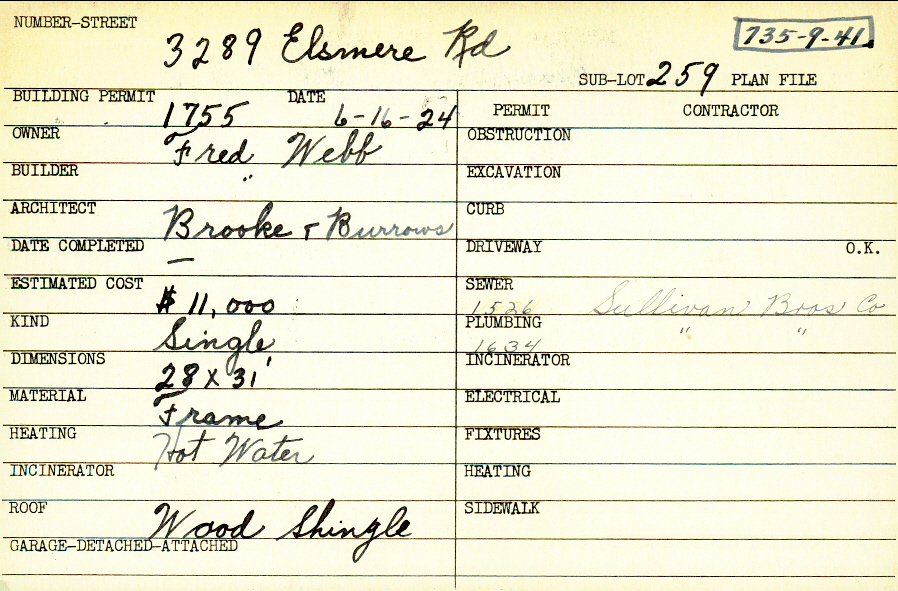 NUMBER-STREET 3289 Elsmere Rd 735-9-41
SUB-LOT 259 PLAN FILE
BUILDING PERMIT 1755 DATE 6-16-24
PERMIT CONTRACTOR
OWNER Fred Webb
OBSTRUCTION
BUILDER "
EXCAVATION
ARCHITECT Brooke & Burrows
CURB
DATE COMPLETED —
DRIVEWAY O.K.
ESTIMATED COST $ 11,000
SEWER 1526 Sullivan Bros Co
KIND Single
PLUMBING 1634 " "
DIMENSIONS 28 x 31'
INCINERATOR
MATERIAL Frame
ELECTRICAL
HEATING Hot Water
FIXTURES
INCINERATOR
HEATING
ROOF Wood Shingle
SIDEWALK
GARAGE-DETACHED-ATTACHED